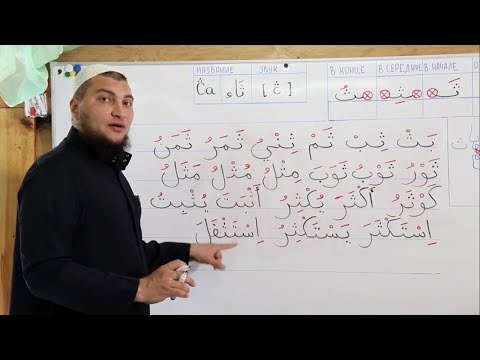 НАЗВАНИЕ ЗВУК В КОНЦЕ В СЕРЕДИНЕ В НАЧАЛЕ
Ĉа ثَاء [ ĉ ] ثَـ ـثِـ ـثُ
بَثْ ثِبْ ثَمْ ثِنْيُ ثَمَرُ ثَمَنُ
ثَوْرُ ثَوْبُ ثَوَبَ مِثْلُ مُثُلُ مَثَلُ
كَوْثَرُ أَكْثَرَ يُكْثِرُ أَنْبَتَ يُنْبِتُ
اِسْتَكْثَرَ يَسْتَكْثِرُ اِسْتَثْفَلَ